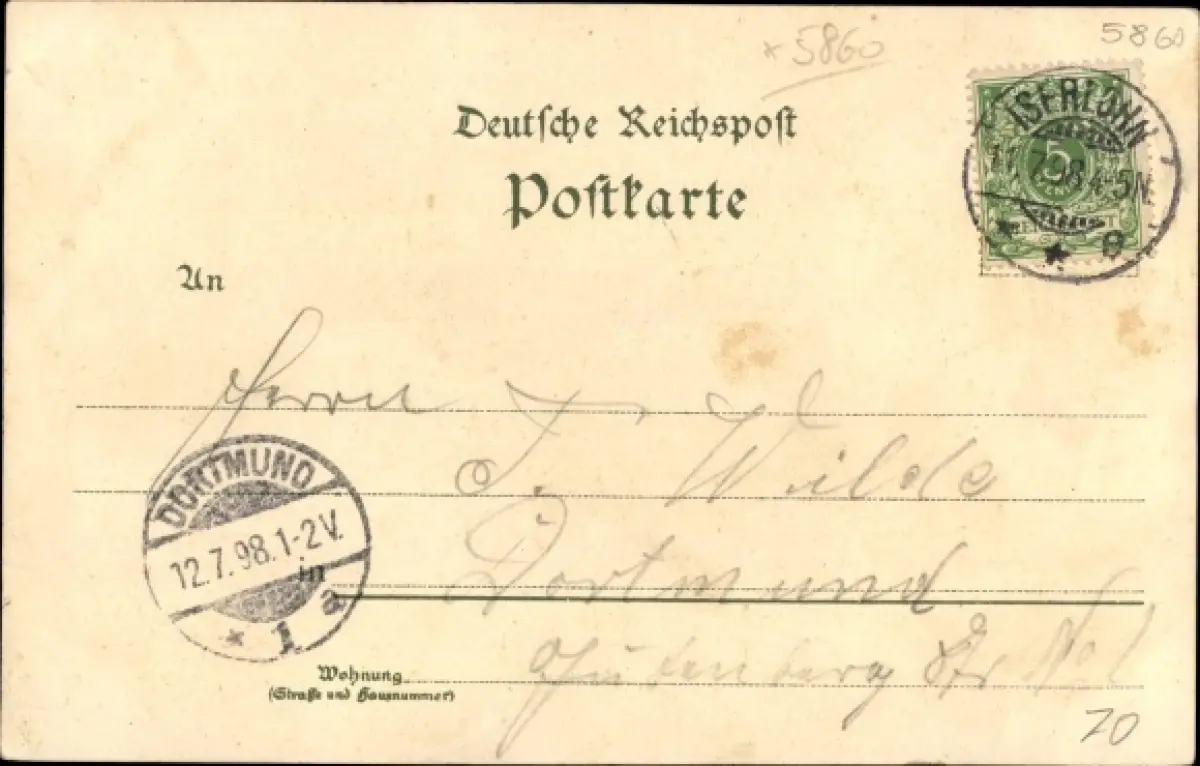 *5860
5860
Deutsche Reichspost
Postkarte
ISERLOHN
11.7.98.4-5N.
5
An
Herrn
J. Wilde
DORTMUND
12.7.98.1-2V.
* 1 a
in Dortmund
Wohnung
(Straße und Hausnummer)
Gutenberg Str
20